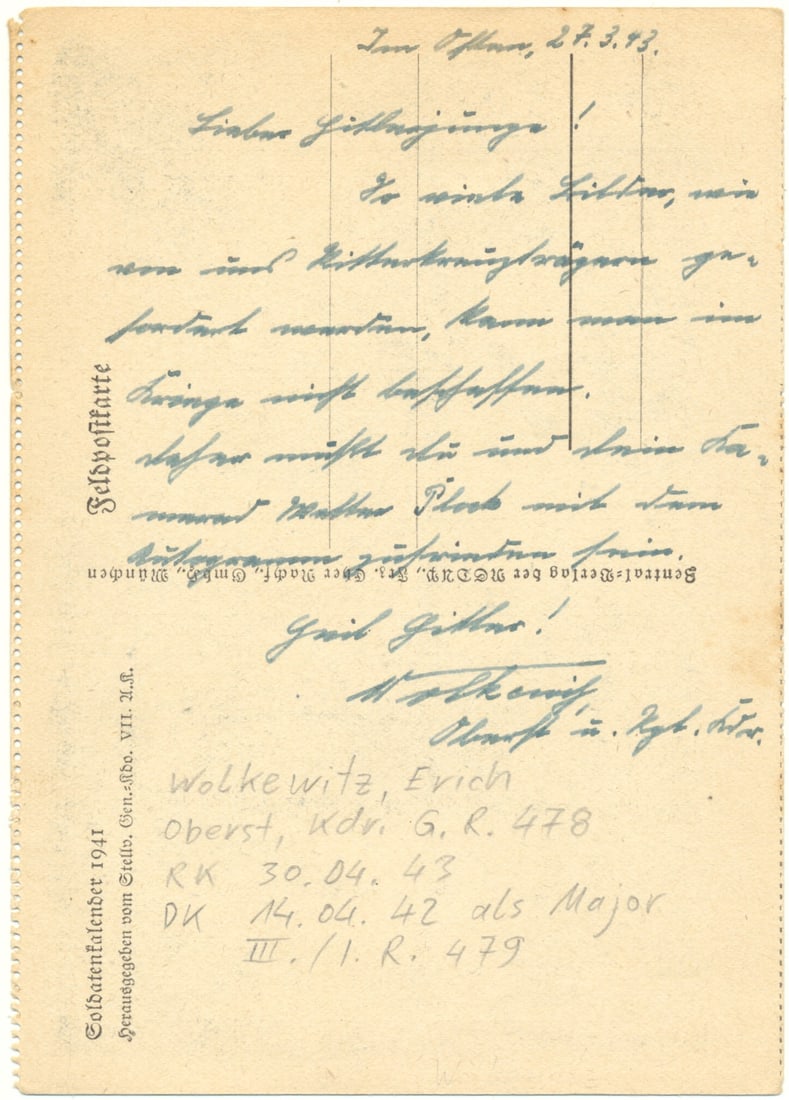 Im Osten, 27.3.43.
Lieber Hitlerjunge!
So viele Bilder, wie
von uns Ritterkreuzträgern ge-
fordert werden, kann man im
Kriege nicht beschaffen.
daher mußt du und dein Ka-
merad Walter Plock mit dem
Autogramm zufrieden sein.
Heil Hitler!
Wolkewitz
Oberst u. Rgt. Kdr.
Wolkewitz, Erich
Oberst, Kdr. G. R. 478
RK 30.04.43
DK 14.04.42 als Major
III./I.R. 479
Feldpostkarte
Zentral-Verlag der NSDAP., Frz. Eher Nachf., GmbH., München
Soldatenkalender 1941
Herausgegeben vom Stellv. Gen.-Kdo. VII. A.K.